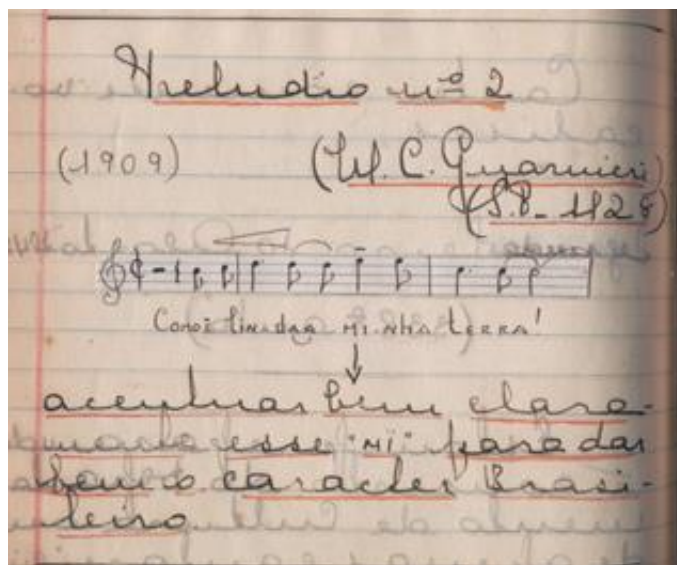 Preludio nº 2
(1909) (M. C. Guarnieri)
(S.P. - 1128)
Como é linda a minha terra!
accentuar bem clara-
mente esse "mi" para dar
bem o caracter Brasi-
leiro